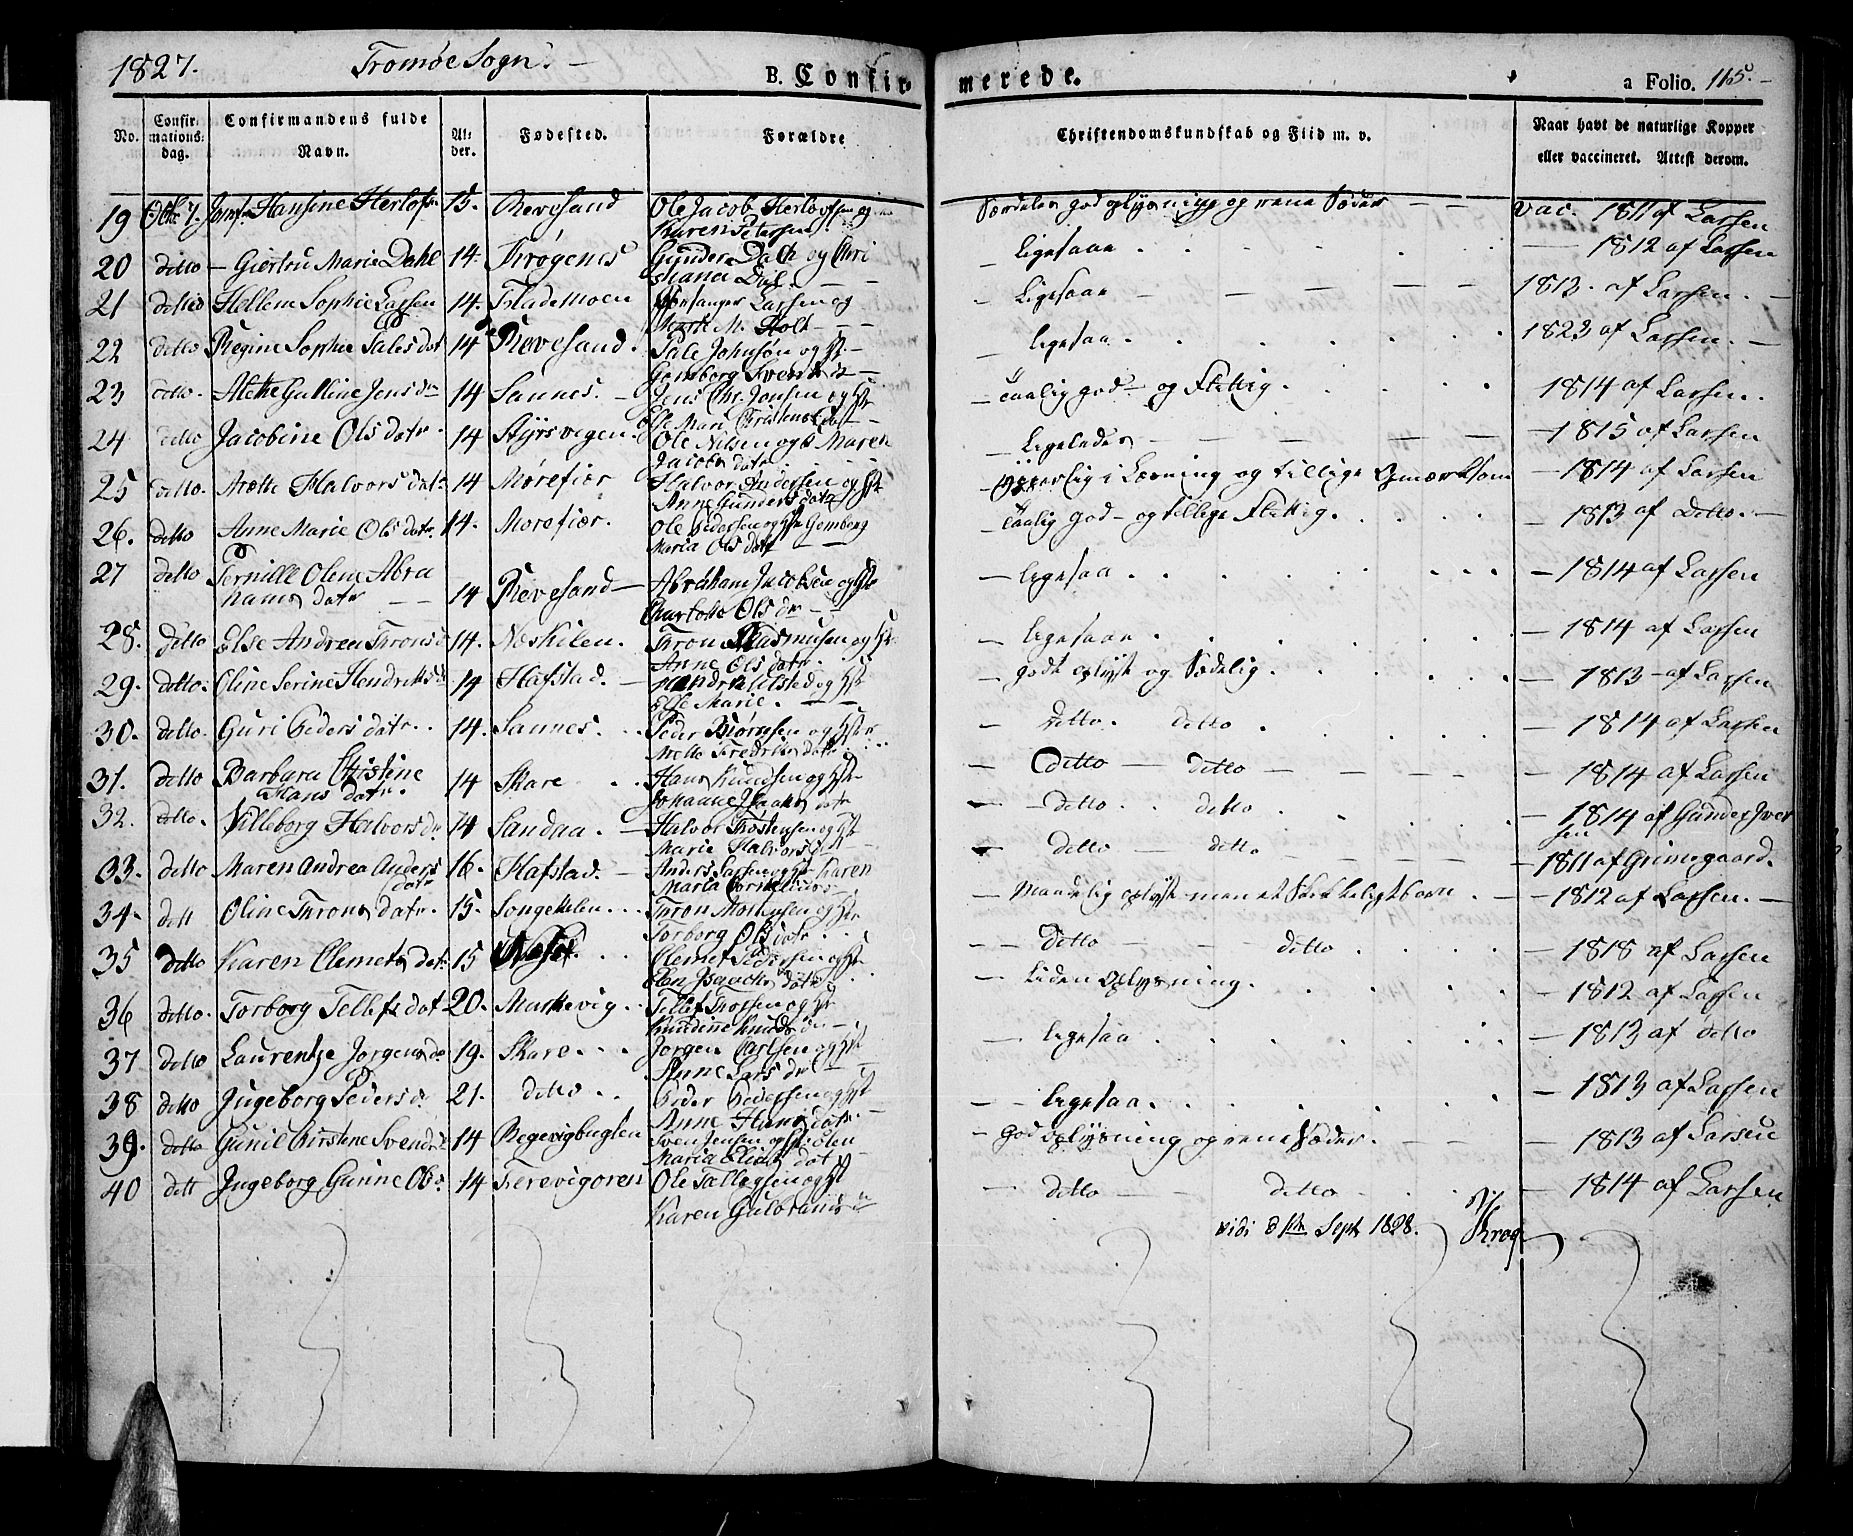 1827. Tromøe Sogn. B. Confirmerede. a Folio. 115.
No. Confirmationsdag. Confirmandens fulde Navn. Alder. Fødested. Forældre Christendomskundskab og Fliid m. v. Naar havt de naturlige Kopper eller vaccineret. Attest derom.
19 Octbr 7. Jomf. Hansine Herlofsen 15. Revesand Ole Jacob Herlofsen og Karen Petersen Særdeles god oplysning og rene Sæder vac. 1811 af Larsen
20 ditto Giertru Marie Dahl 14. Frøgenes Gunder Dahl og Chri Maria Dal Ligesaa 1812 af Larsen
21 ditto Hellene Sophie Larsen 14. Flademoen Forsanger Larsen og Marte M. Holt Ligesaa 1813. af Larsen.
22 ditto Regine Sophie Pals dat 14 Revesand. Pale Johnsøn og Gomborg Svends ligesaa 1823 af Larsen.
23 ditto. Mette Gulline Jens dr 14 Sannes. Jens Chr. Jonsen og Else Mari Christens dat taalig god og Flittig. 1814 af Larsen.
24 ditto Jacobine Ols datr 14 Styrsvigen. Ole Nilsen og Maren Jacobs datr Ligeledes 1815 af Larsen
25 ditto. Anette Halvors dat. 14 Mørefiær Halvor Andersen og Anne Gunders datr i Læsning og tillige Opmærksom 1814 af Larsen
26. ditto Anne Marie Ols datr. 14. Morefiær. Ole Pedersen og Gomborg Maria Ols datr taalig god og tillige Flittig. 1813 af Ditto.
27 ditto Pernille Olene Abrahams datr 14 Revesand Abraham Jacobsen og Charlotte Ols dr ligesaa 1814 af Larsen
28. ditto Else Andrea Throns d 14. Neskilen. Thron Rasmusen og Anne Ols datr. ligesaa 1814 af Larsen
29. ditto. Oline Serine Hendriks d 14 Hafstad. Else Marie. godt oplyst og Sædelig. 1813 af Larsen
30. ditto. Guri Peders datr. 14. Sannes. Peder Biørnsen og Mette Fredriks datr. ditto. ditto 1814 af Larsen
31. ditto Barbara Christine Hans datr. 14 Skare Hans Knudsen og Johanne Isaaks datr ditto ditto 1814 af Larsen
32. ditto. Villeborg Halvors dr 14 Sandaa. Halvor Tostensen og Marie Halvors ditto ditto 1814 af Gunder Iversen
33. ditto Maren Andrea Anders datr 16. Hafstad. Anders Larsen og Karen Maria Cornelius ditto ditto 1811 af Grimsgaard.
34. ditt Oline Throns datr. 15. Songekilen Thron Mortensen og Torborg Ols datr Maadelig oplyst men et Skikkeligt barn. 1812 af Larsen.
35 ditto Karen Clemets dat. 15 Clemet Pedersen og Elen Isaachs datr ditto ditto 1818 af Larsen
36 ditto. Torborg Tellefs dat 20. Markevig Tellef Trossen og Knudinne Knuds dr Liden oplysning. 1812 af Larsen
37 ditto Laurentze Jorgens dr 19. Skare Jorgen Carlsen og Anne Lars dr ligesaa 1813 af ditto
38 ditto Ingeborg Peders d. 21. ditto Peder Pedersen og Anne Hans datr. ligesaa. 1813 af Larsen
39. ditto Gunil Kirstene Svends d 14 Regevigbugten Sven Jensen og Maria Elias dat God oplysning og rene Sæder. 1813 af Larsen
40 ditt Ingeborg Gurine Ols d 14 Færevigoren Ole Tallefsen og Karen Gulbrands dr ditto ditto 1814 af Larsen
vidi 8de Sept 1828. Krog